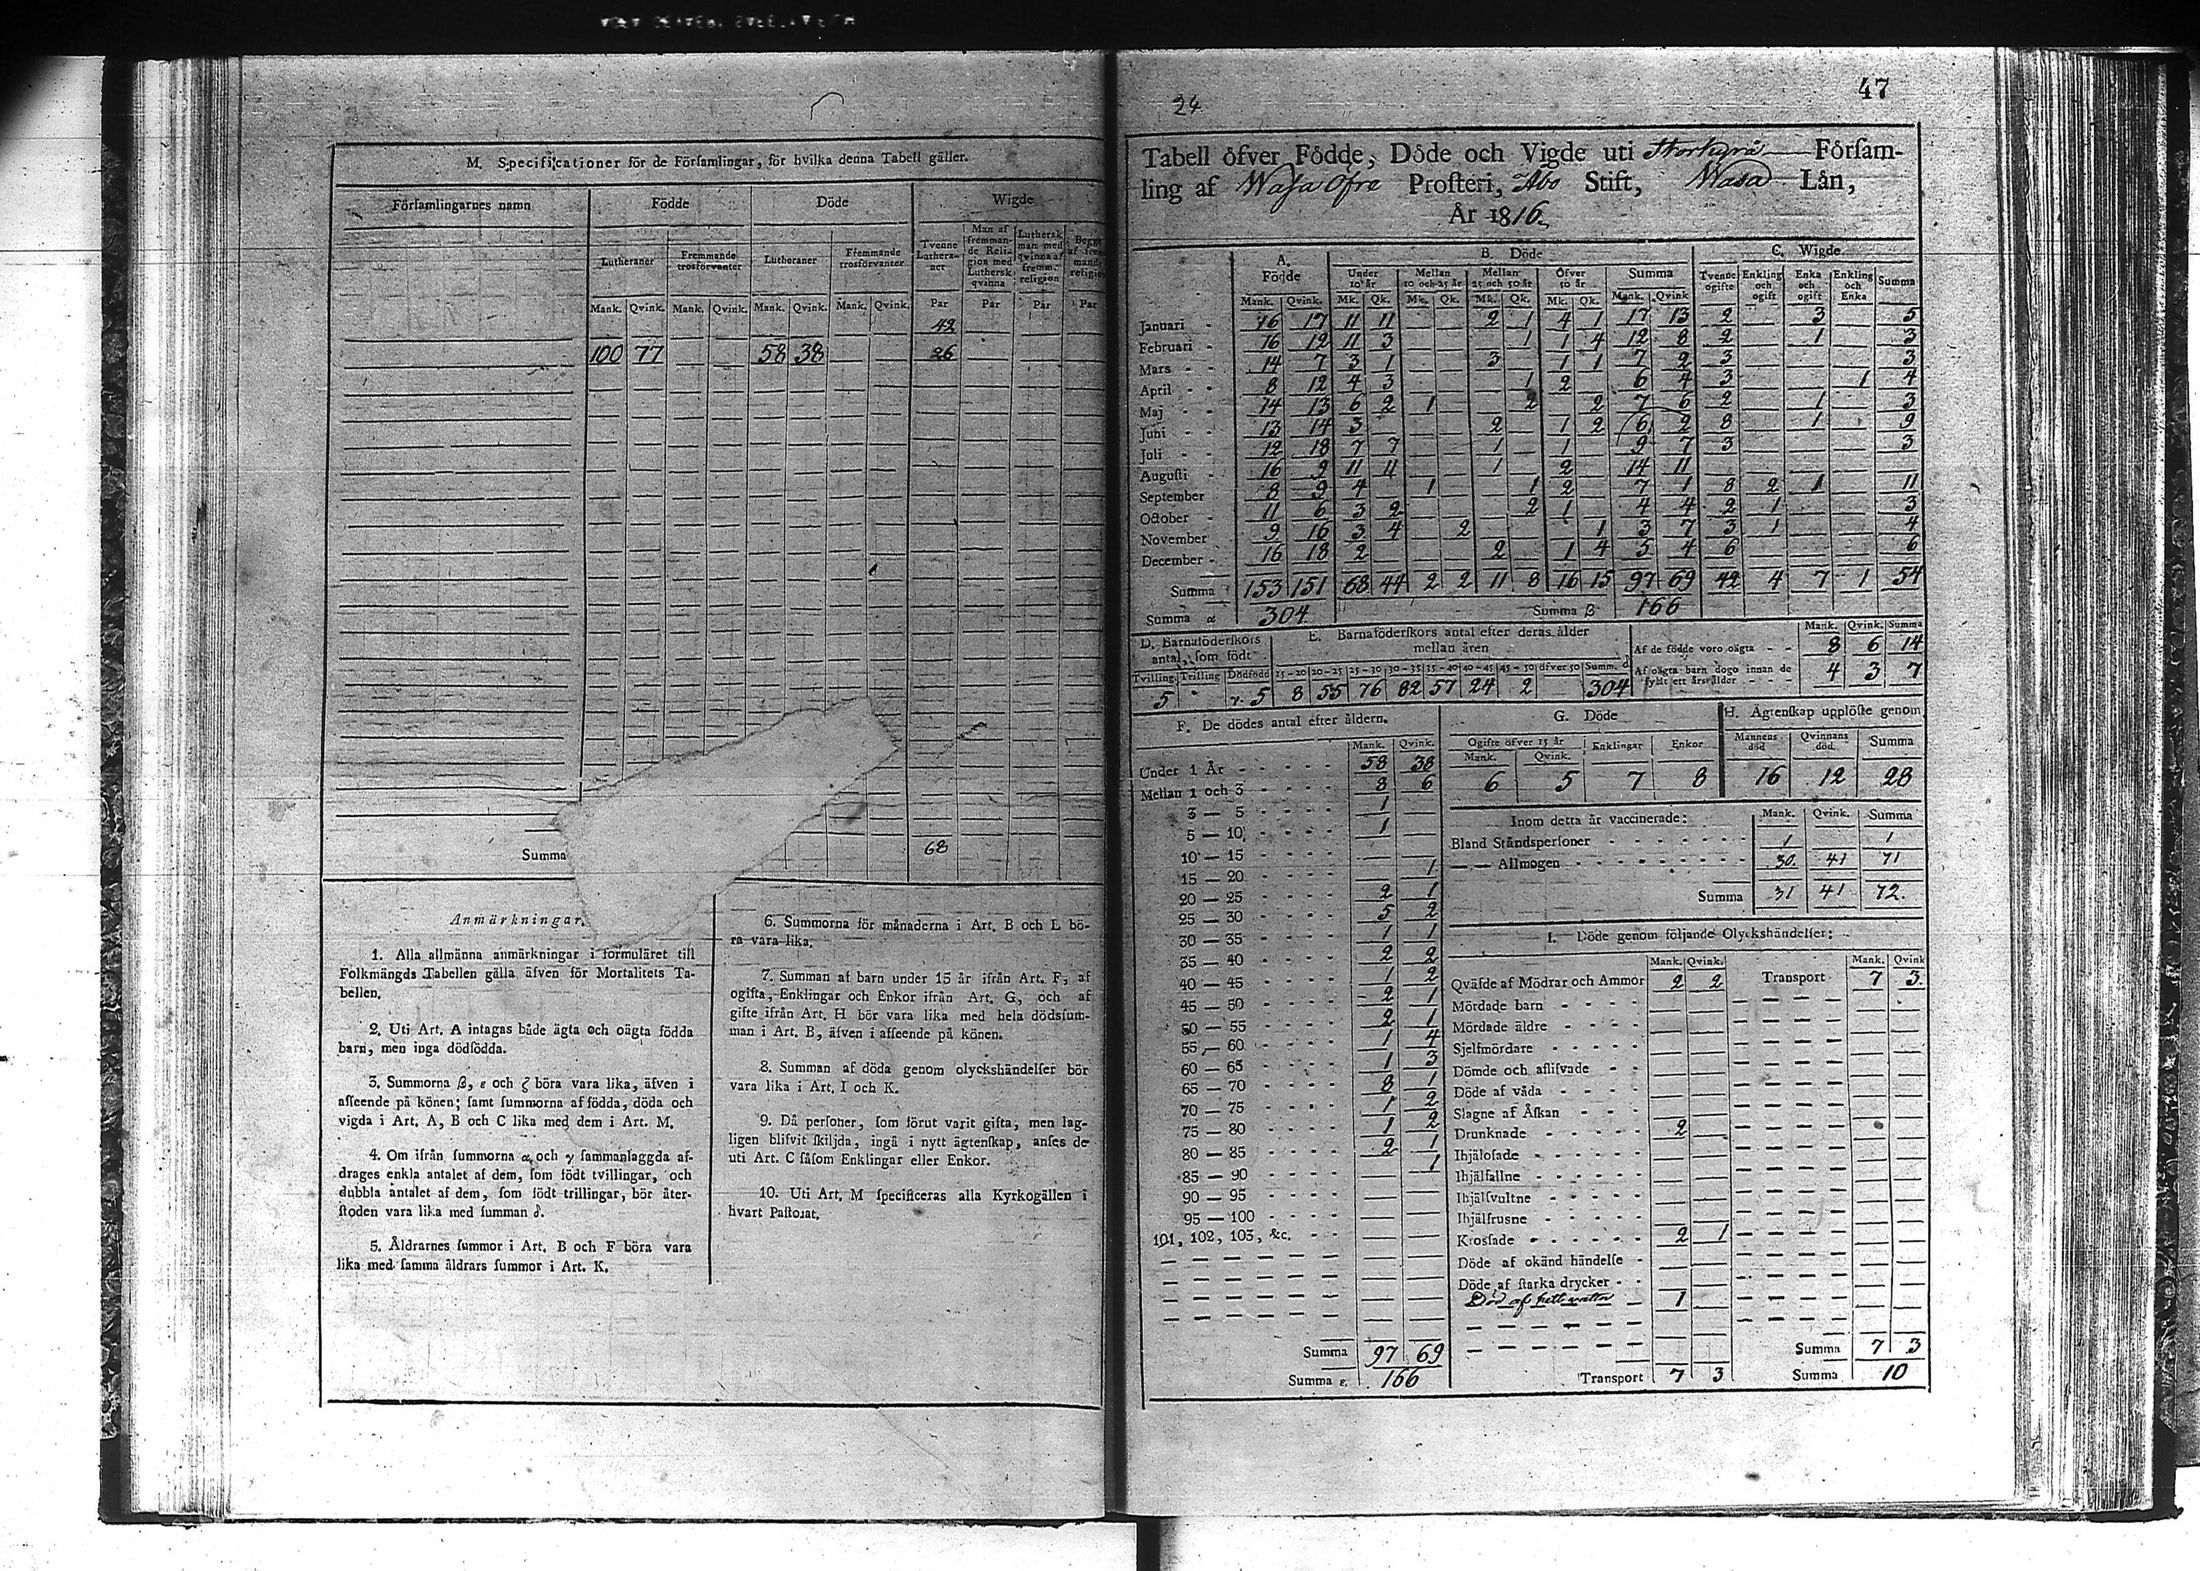 M. Specificationer för de Församlingar, för hvilka denna Tabell gäller.
Församlingarnes namn Födde Döde Wigde
Lutheraner Fremmande trosförvanter Lutheraner Fremmande trosförvanter Tvenne Lutheraner Man af fremmande Religion med Luthersk qvinna Luthersk man med qvinna af fremm. religion
Mank. Qvink. Mank. Qvink. Mank. Qvink. Mank. Qvink. Par Par Par Par
42
100 77 58 38 26
Summa 68
Anmärkningar.
1. Alla allmänna anmärkningar i formuläret till
Folkmängds Tabellen gälla äfven för Mortalitets Ta-
bellen.
2. Uti Art. A intagas både ägta och oägta födda
barn, men inga dödfödda.
3. Summorna β, ε och ζ böra vara lika, äfven i
afseende på könen; samt summorna af födda, döda och
vigda i Art. A, B och C lika med dem i Art. M.
4. Om ifrån summorna α och γ sammanlaggda af-
drages enkla antalet af dem, som födt tvillingar, och
dubbla antalet af dem, som födt trillingar, bör åter-
stoden vara lika med summan δ.
5. Åldrarnes summor i Art. B och F böra vara
lika med samma åldrars summor i Art. K.
6. Summorna för månaderna i Art. B och L bö-
ra vara lika.
7. Summan af barn under 15 år ifrån Art. F, af
ogifta, Enklingar och Enkor ifrån Art. G, och af
gifte ifrån Art. H bör vara lika med hela dödssum-
man i Art. B, äfven i afseende på könen.
8. Summan af döda genom olyckshändelser bör
vara lika i Art. I och K.
9. Då personer, som förut varit gifta, men lag-
ligen blifvit skiljda, ingå i nytt ägtenskap, anses de
uti Art. C såsom Enklingar eller Enkor.
10. Uti Art. M specificeras alla Kyrkogällen i
hvart Pastorat.
24
47
Tabell öfver Födde, Döde och Vigde uti Storkyro Församling
af Wasa Öfre Prosteri, Åbo Stift, Wasa Län,
År 1816.
A. Födde B. Döde C. Wigde
Under 10 år Mellan 10 och 25 år Mellan 25 och 50 år Öfver 50 år Summa Tvenne ogifte Enkling och ogift Enka och ogift Enkling och Enka Summa
Mank. Qvink. Mk. Qk. Mk. Qk. Mk. Qk. Mk. Qk. Mank. Qvink
Januari 16 17 11 11 2 1 4 1 17 13 2 3 5
Februari 16 12 11 3 1 1 4 12 8 2 1 3
Mars 14 7 3 1 3 1 1 7 2 3 3
April 8 12 4 3 1 2 6 4 3 1 4
Maj 14 13 6 2 1 2 2 7 6 2 1 3
Juni 13 14 3 2 1 2 6 2 8 1 9
Juli 12 18 7 7 1 1 9 7 3 3
Augusti 16 9 11 11 1 2 14 11
September 8 9 4 1 1 2 7 1 8 2 1 11
October 11 6 3 2 2 1 4 4 2 1 3
November 9 16 3 4 2 1 3 7 3 1 4
December 16 18 2 2 1 4 5 4 6 6
Summa 153 151 68 44 2 2 11 8 16 15 97 69 42 4 7 1 54
Summa α 304 Summa β 166
D. Barnaföderskors antal, som födt
Tvilling Trilling Dödfödd
5 γ. 5
E. Barnaföderskors antal efter deras ålder mellan åren
15-20 20-25 25-30 30-35 35-40 40-45 45-50 öfver 50 Summ. δ
8 55 76 82 57 24 2 304
Mank. Qvink. Summa
Af de födde voro oägta 8 6 14
Af oägta barn dogo innan de fyllt ett års ålder 4 3 7
F. De dödes antal efter åldern.
Mank. Qvink.
Under 1 År 58 38
Mellan 1 och 3 8 6
3 — 5 1
5 — 10 1
10 — 15
15 — 20 1
20 — 25 2 1
25 — 30 5 2
30 — 35 1 1
35 — 40 2 2
40 — 45 1 2
45 — 50 2 1
50 — 55 2 1
55 — 60 1 4
60 — 65 1 3
65 — 70 8 1
70 — 75 1 2
75 — 80 1 2
80 — 85 2 1
85 — 90 1
90 — 95
95 — 100
101, 102, 103, &c.
Summa 97 69
Summa ε. 166
G. Döde
Ogifte öfver 15 år Enklingar Enkor
Mank. Qvink.
6 5 7 8
H. Ägtenskap upplöste genom
Mannens död Qvinnans död. Summa
16 12 28
Inom detta år vaccinerade: Mank. Qvink. Summa
Bland Ståndspersoner 1 1
— — Allmogen 30. 41 71
Summa 31 41 72.
I. Döde genom följande Olyckshändelser:
Mank. Qvink. Mank. Qvink
Qväfde af Mödrar och Ammor 2 2 Transport 7 3.
Mördade barn
Mördade äldre
Sjelfmördare
Dömde och aflifvade
Döde af våda
Slagne af Åskan
Drunknade 2
Ihjälosade
Ihjälfallne
Ihjälsvultne
Ihjälfrusne
Krossade 2 1
Döde af okänd händelse
Döde af starka drycker
Död af hett vatten 1
Summa 7 3
Transport 7 3 Summa 10